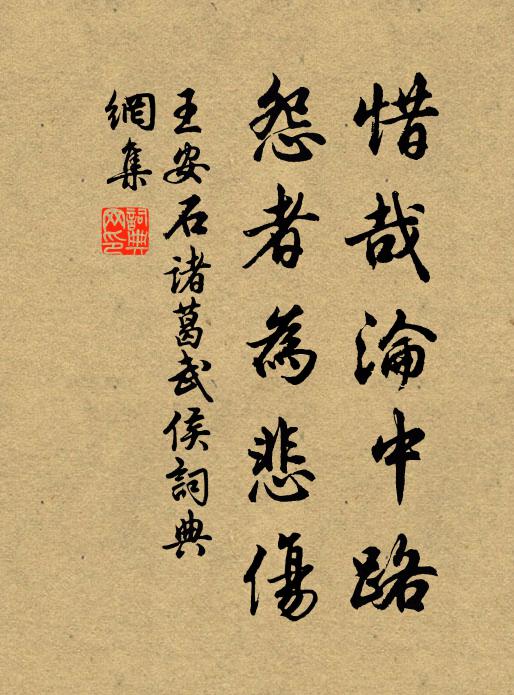 惜哉淪中路
怨者為悲傷
王安石諸葛武侯詞典
網集
詞典網印